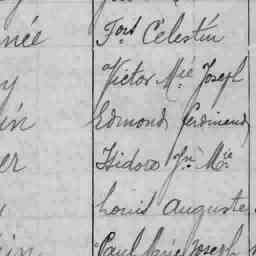 née Fois Célestin
y Victor Mie Joseph
in Edmond Ferdinand
er Isidore Jn Mie
Louis Auguste
in Paul Marie Joseph